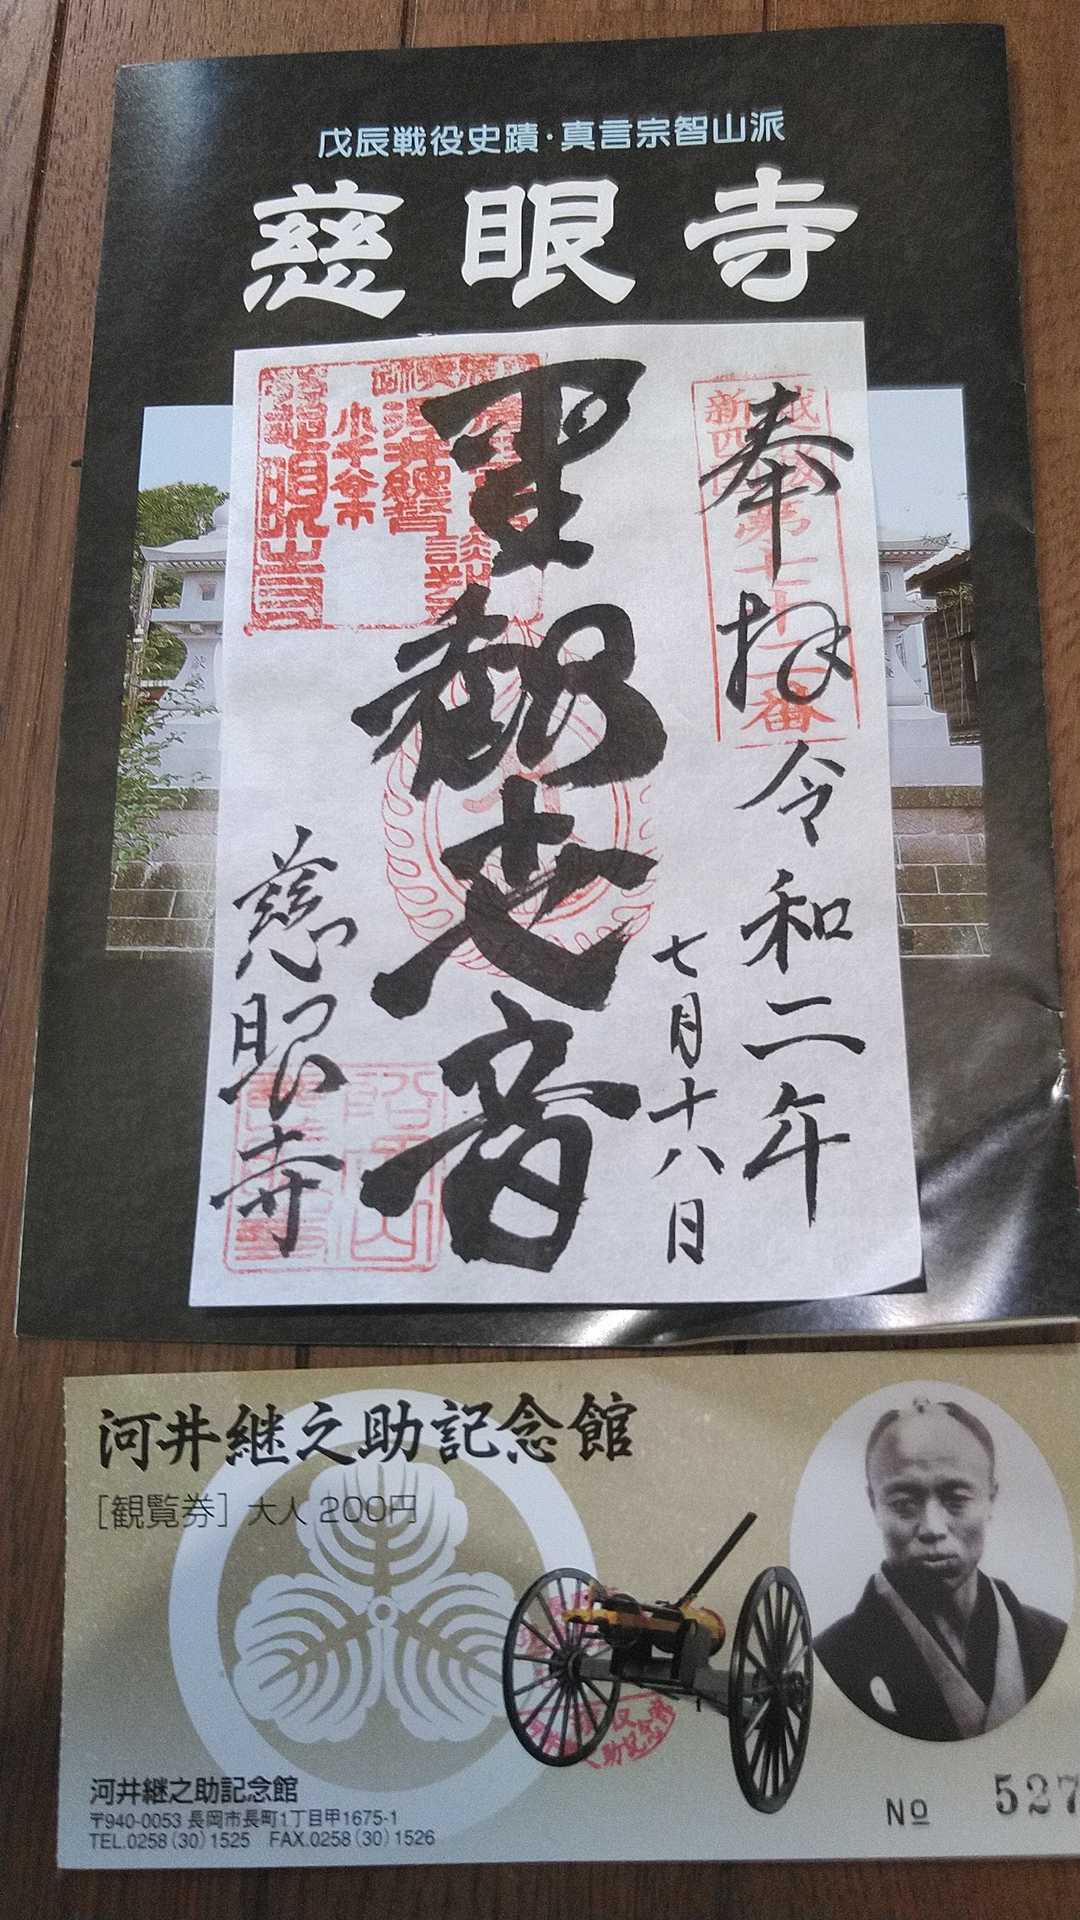 戊辰戦役史蹟・真言宗智山派
慈眼寺
奉拝
令和二年
七月十八日
聖観世音
慈眼寺
第七十二番
小千谷市
河井継之助記念館
[観覧券] 大人 200円
河井継之助記念館
〒940-0053 長岡市長町1丁目甲1675-1
TEL.0258(30)1525 FAX.0258(30)1526
No 527